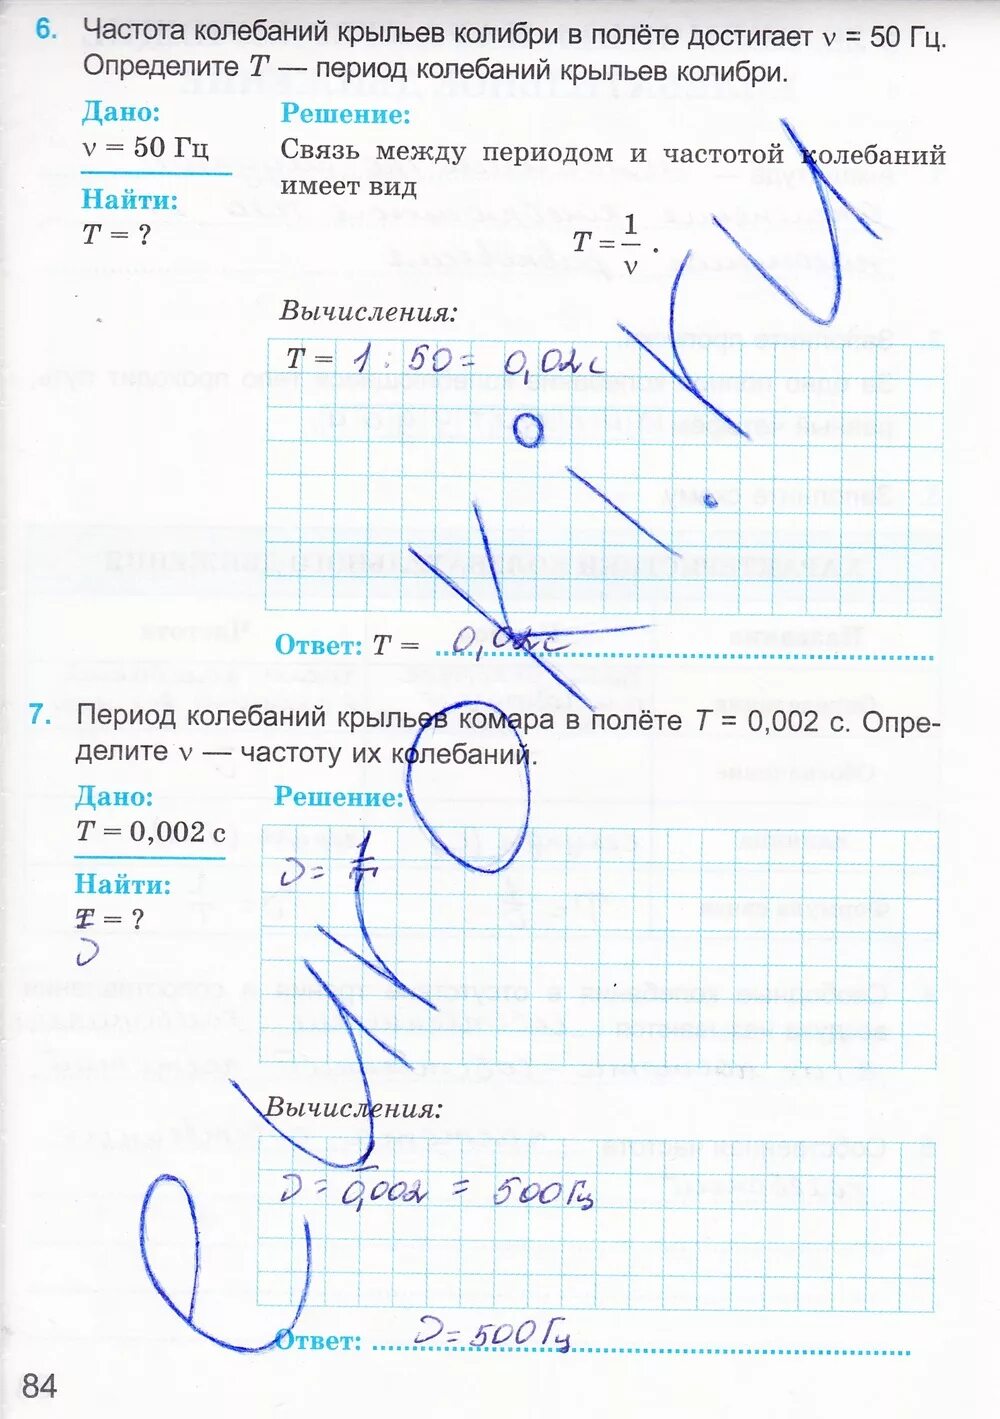 6. Частота колебаний крыльев колибри в полёте достигает ν = 50 Гц.
Определите T — период колебаний крыльев колибри.
Дано: Решение:
ν = 50 Гц Связь между периодом и частотой колебаний
имеет вид
Найти:
T = ?
T = 1/ν .
Вычисления:
T = 1 : 50 = 0,02 с
Ответ: T = 0,02 с
7. Период колебаний крыльев комара в полёте T = 0,002 с. Опре-
делите ν — частоту их колебаний.
Дано: Решение:
T = 0,002 с
ν = 1/T
Найти:
T = ?
ν
Вычисления:
ν = 1/0,002 = 500 Гц
Ответ: ν = 500 Гц
84